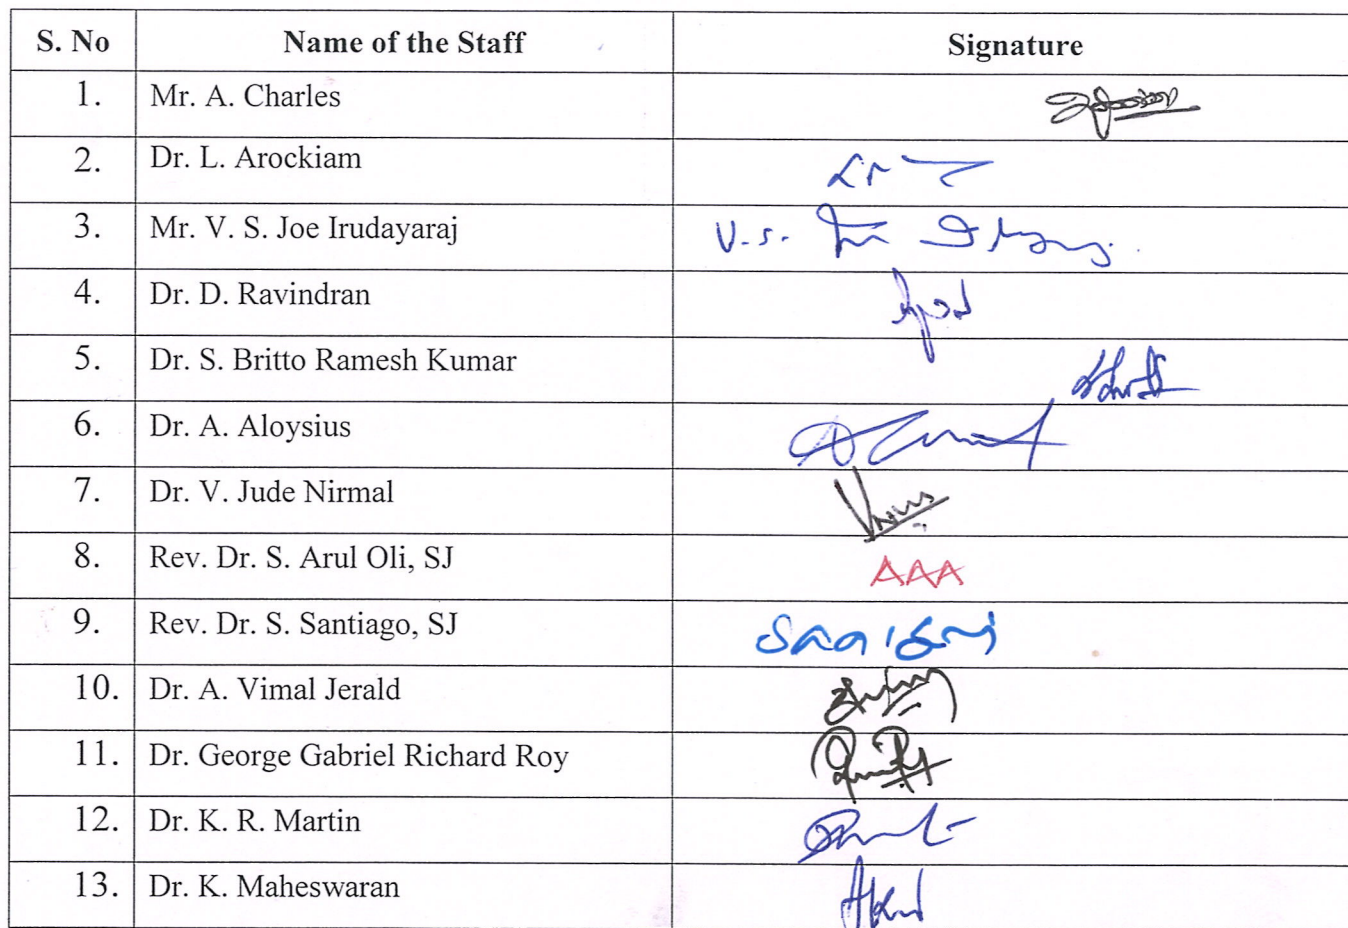 S. No Name of the Staff Signature
1. Mr. A. Charles
2. Dr. L. Arockiam
3. Mr. V. S. Joe Irudayaraj V.S.
4. Dr. D. Ravindran
5. Dr. S. Britto Ramesh Kumar
6. Dr. A. Aloysius
7. Dr. V. Jude Nirmal
8. Rev. Dr. S. Arul Oli, SJ AAA
9. Rev. Dr. S. Santiago, SJ
10. Dr. A. Vimal Jerald
11. Dr. George Gabriel Richard Roy
12. Dr. K. R. Martin
13. Dr. K. Maheswaran